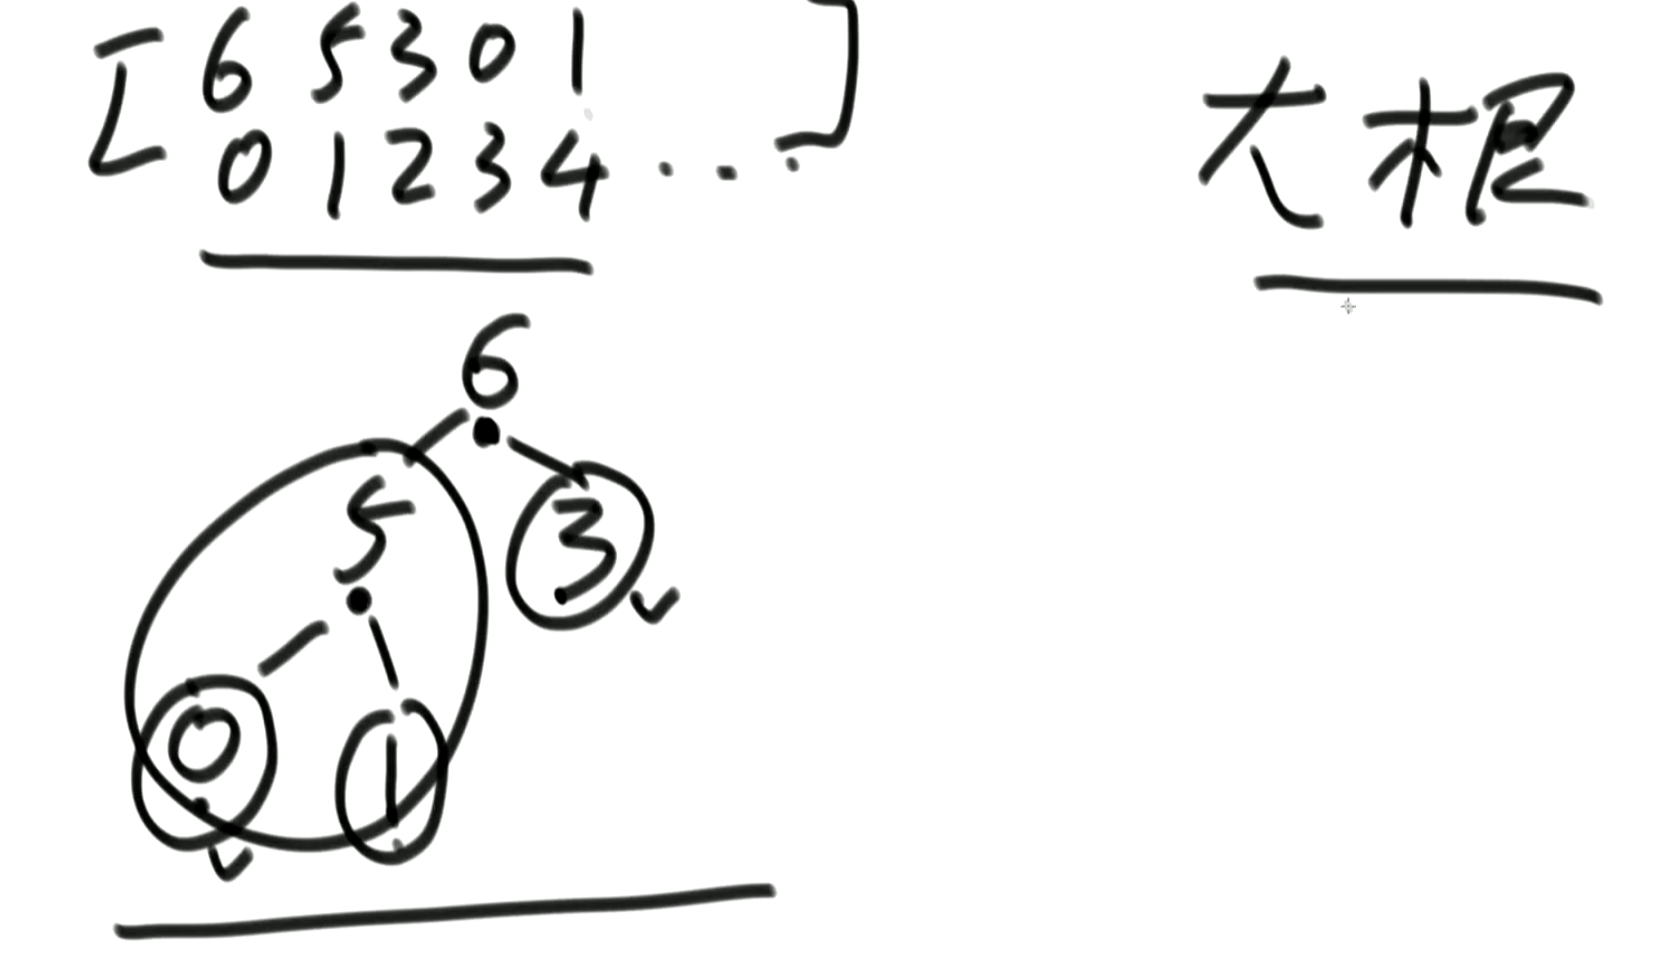 [ 6 5 3 0 1 ]
0 1 2 3 4 ...
大根
6
5 3
0 1